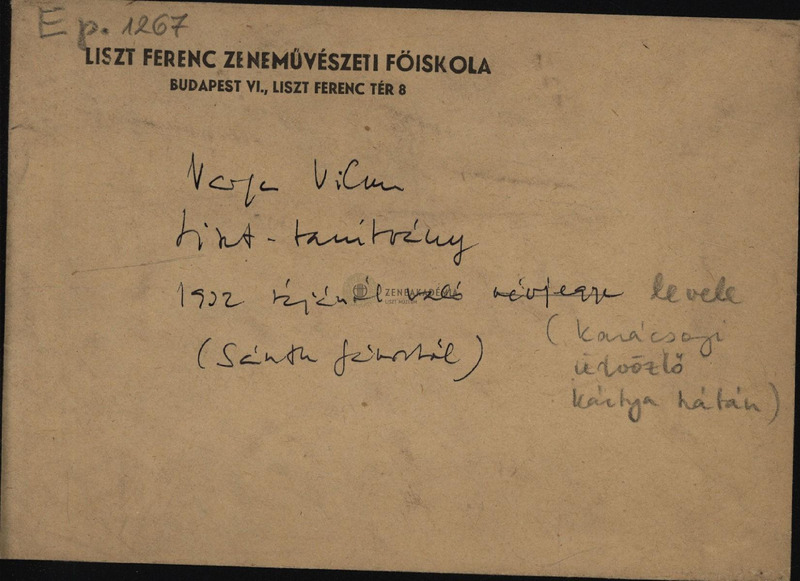 Ep. 1267
LISZT FERENC ZENEMŰVÉSZETI FŐISKOLA
BUDAPEST VI., LISZT FERENC TÉR 8
Varga Vilma
Liszt-tanítvány
1932 tájáról való névjegye levele
(Sánta Jánostól)
(karácsonyi
üdvözlő
kártya hátán)
ZENEAKADÉMIA
LISZT MÚZEUM